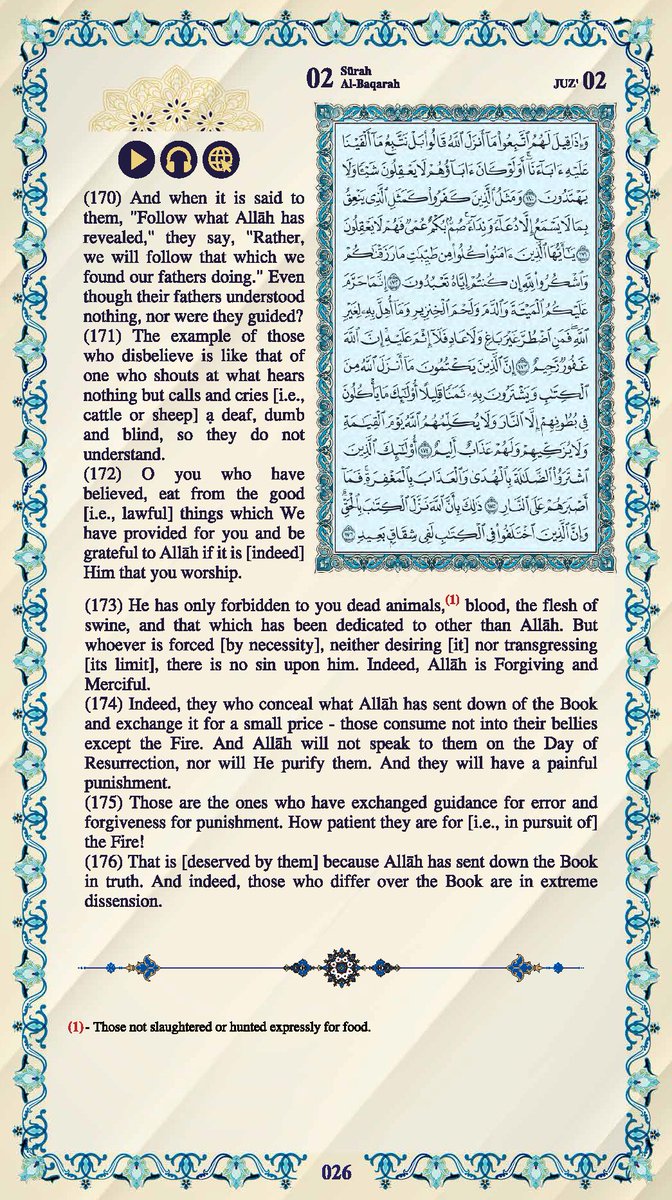 02 Sūrah
Al-Baqarah
JUZ' 02
وَإِذَا قِيلَ لَهُمُ ٱتَّبِعُوا۟ مَآ أَنزَلَ ٱللَّهُ قَالُوا۟ بَلْ نَتَّبِعُ مَآ أَلْفَيْنَا
عَلَيْهِ ءَابَآءَنَآ ۗ أَوَلَوْ كَانَ ءَابَآؤُهُمْ لَا يَعْقِلُونَ شَيْـًٔا وَلَا
يَهْتَدُونَ ١٧٠ وَمَثَلُ ٱلَّذِينَ كَفَرُوا۟ كَمَثَلِ ٱلَّذِى يَنْعِقُ
بِمَا لَا يَسْمَعُ إِلَّا دُعَآءً وَنِدَآءً ۚ صُمٌّۢ بُكْمٌ عُمْىٌ فَهُمْ لَا يَعْقِلُونَ
١٧١ يَـٰٓأَيُّهَا ٱلَّذِينَ ءَامَنُوا۟ كُلُوا۟ مِن طَيِّبَـٰتِ مَا رَزَقْنَـٰكُمْ
وَٱشْكُرُوا۟ لِلَّهِ إِن كُنتُمْ إِيَّاهُ تَعْبُدُونَ ١٧٢ إِنَّمَا حَرَّمَ
عَلَيْكُمُ ٱلْمَيْتَةَ وَٱلدَّمَ وَلَحْمَ ٱلْخِنزِيرِ وَمَآ أُهِلَّ بِهِۦ لِغَيْرِ
ٱللَّهِ ۖ فَمَنِ ٱضْطُرَّ غَيْرَ بَاغٍ وَلَا عَادٍ فَلَآ إِثْمَ عَلَيْهِ ۚ إِنَّ ٱللَّهَ
غَفُورٌ رَّحِيمٌ ١٧٣ إِنَّ ٱلَّذِينَ يَكْتُمُونَ مَآ أَنزَلَ ٱللَّهُ مِنَ
ٱلْكِتَـٰبِ وَيَشْتَرُونَ بِهِۦ ثَمَنًا قَلِيلًا ۙ أُو۟لَـٰٓئِكَ مَا يَأْكُلُونَ
فِى بُطُونِهِمْ إِلَّا ٱلنَّارَ وَلَا يُكَلِّمُهُمُ ٱللَّهُ يَوْمَ ٱلْقِيَـٰمَةِ
وَلَا يُزَكِّيهِمْ وَلَهُمْ عَذَابٌ أَلِيمٌ ١٧٤ أُو۟لَـٰٓئِكَ ٱلَّذِينَ
ٱشْتَرَوُا۟ ٱلضَّلَـٰلَةَ بِٱلْهُدَىٰ وَٱلْعَذَابَ بِٱلْمَغْفِرَةِ ۚ فَمَآ
أَصْبَرَهُمْ عَلَى ٱلنَّارِ ١٧٥ ذَٰلِكَ بِأَنَّ ٱللَّهَ نَزَّلَ ٱلْكِتَـٰبَ بِٱلْحَقِّ ۗ
وَإِنَّ ٱلَّذِينَ ٱخْتَلَفُوا۟ فِى ٱلْكِتَـٰبِ لَفِى شِقَاقٍۭ بَعِيدٍ ١٧٦
(170) And when it is said to
them, "Follow what Allāh has
revealed," they say, "Rather,
we will follow that which we
found our fathers doing." Even
though their fathers understood
nothing, nor were they guided?
(171) The example of those
who disbelieve is like that of
one who shouts at what hears
nothing but calls and cries [i.e.,
cattle or sheep] ạ deaf, dumb
and blind, so they do not
understand.
(172) O you who have
believed, eat from the good
[i.e., lawful] things which We
have provided for you and be
grateful to Allāh if it is [indeed]
Him that you worship.
(173) He has only forbidden to you dead animals,(1) blood, the flesh of
swine, and that which has been dedicated to other than Allāh. But
whoever is forced [by necessity], neither desiring [it] nor transgressing
[its limit], there is no sin upon him. Indeed, Allāh is Forgiving and
Merciful.
(174) Indeed, they who conceal what Allāh has sent down of the Book
and exchange it for a small price - those consume not into their bellies
except the Fire. And Allāh will not speak to them on the Day of
Resurrection, nor will He purify them. And they will have a painful
punishment.
(175) Those are the ones who have exchanged guidance for error and
forgiveness for punishment. How patient they are for [i.e., in pursuit of]
the Fire!
(176) That is [deserved by them] because Allāh has sent down the Book
in truth. And indeed, those who differ over the Book are in extreme
dissension.
(1)- Those not slaughtered or hunted expressly for food.
026